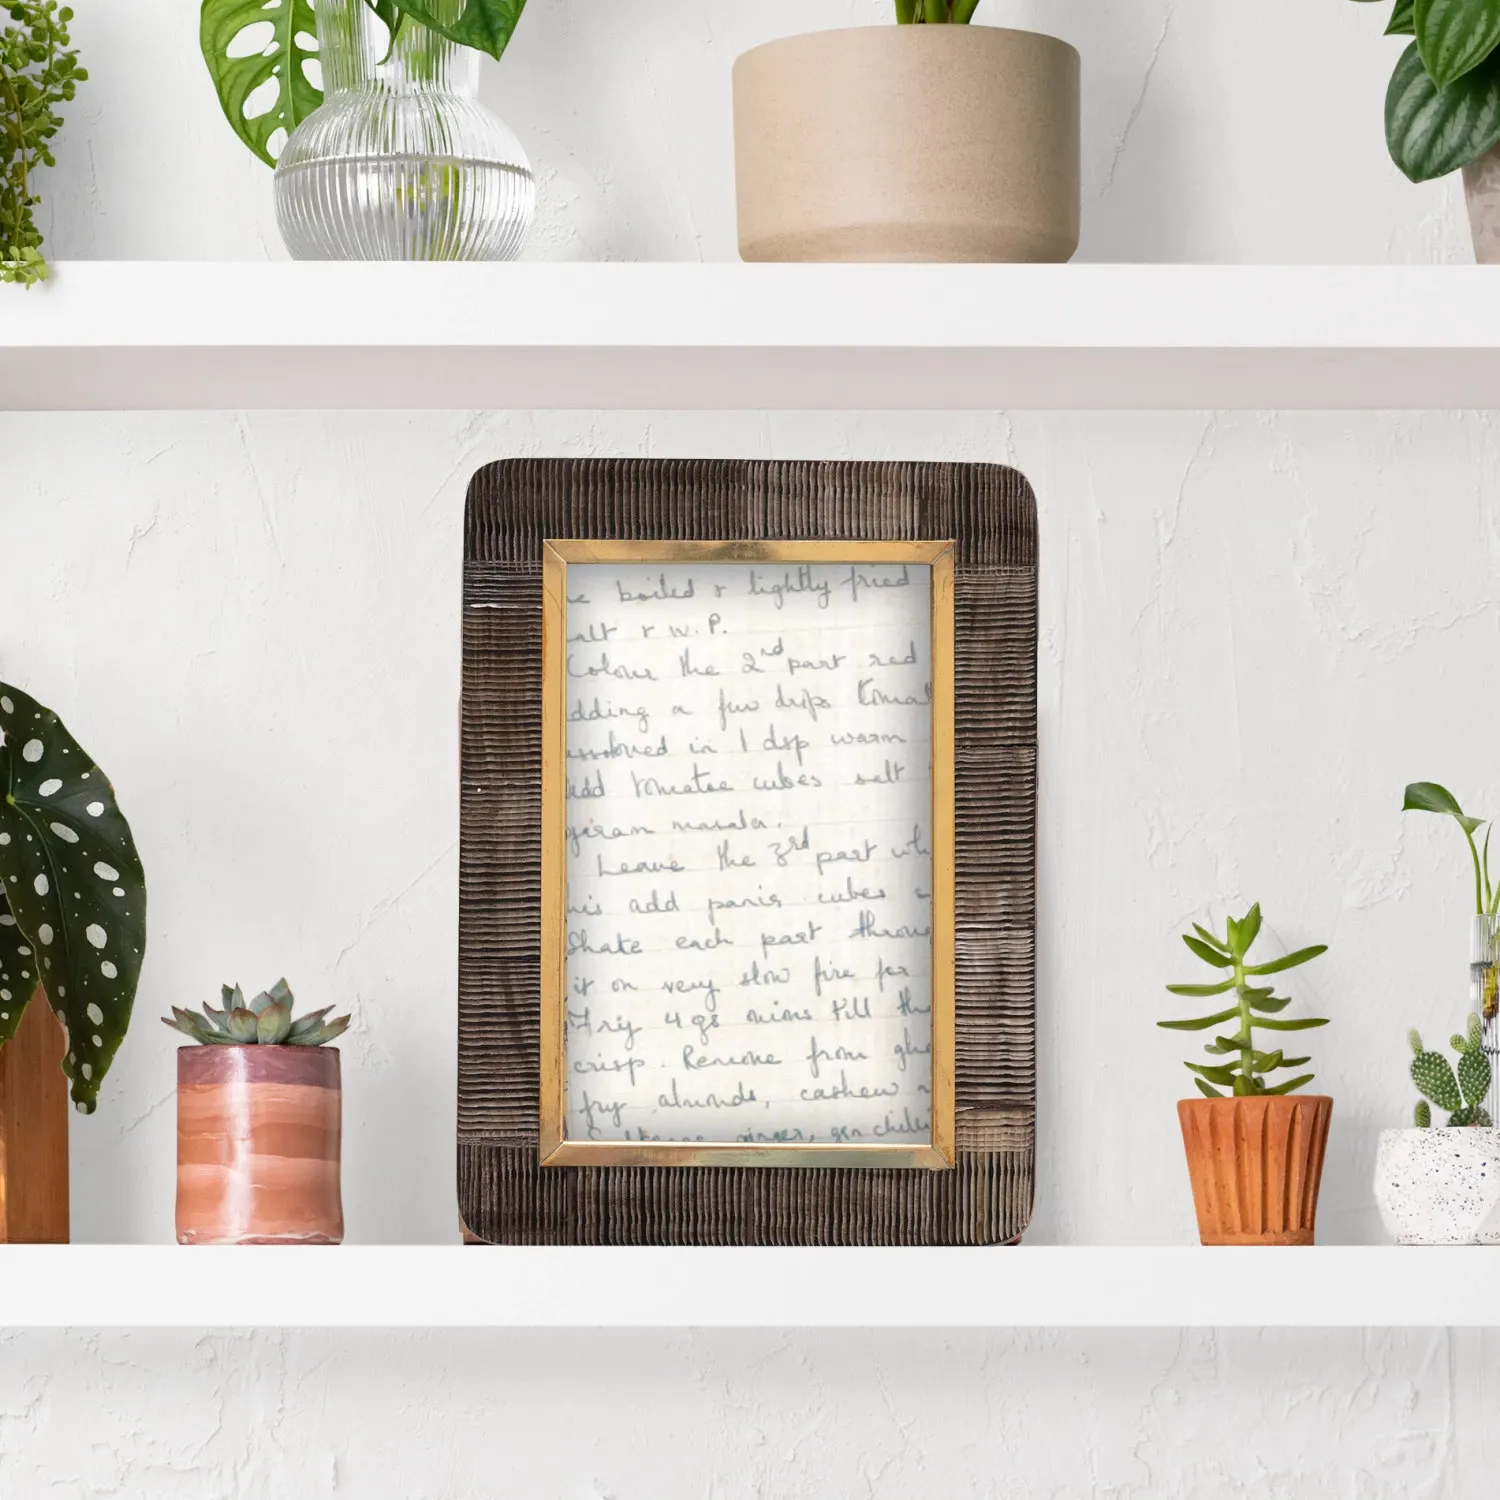 e boiled & lightly fried
alt & W.P.
Colour the 2nd part red
dding a few drips tomat
ssolved in 1 dsp warm
add tomatoe cubes salt
garam masala.
Leave the 3rd part wh
his add panir cubes
Shake each part
it on very slow fire for
Fry 4 gs mins till th
crisp. Remove from ghe
fry almonds, cashew
ginger, grn chilli